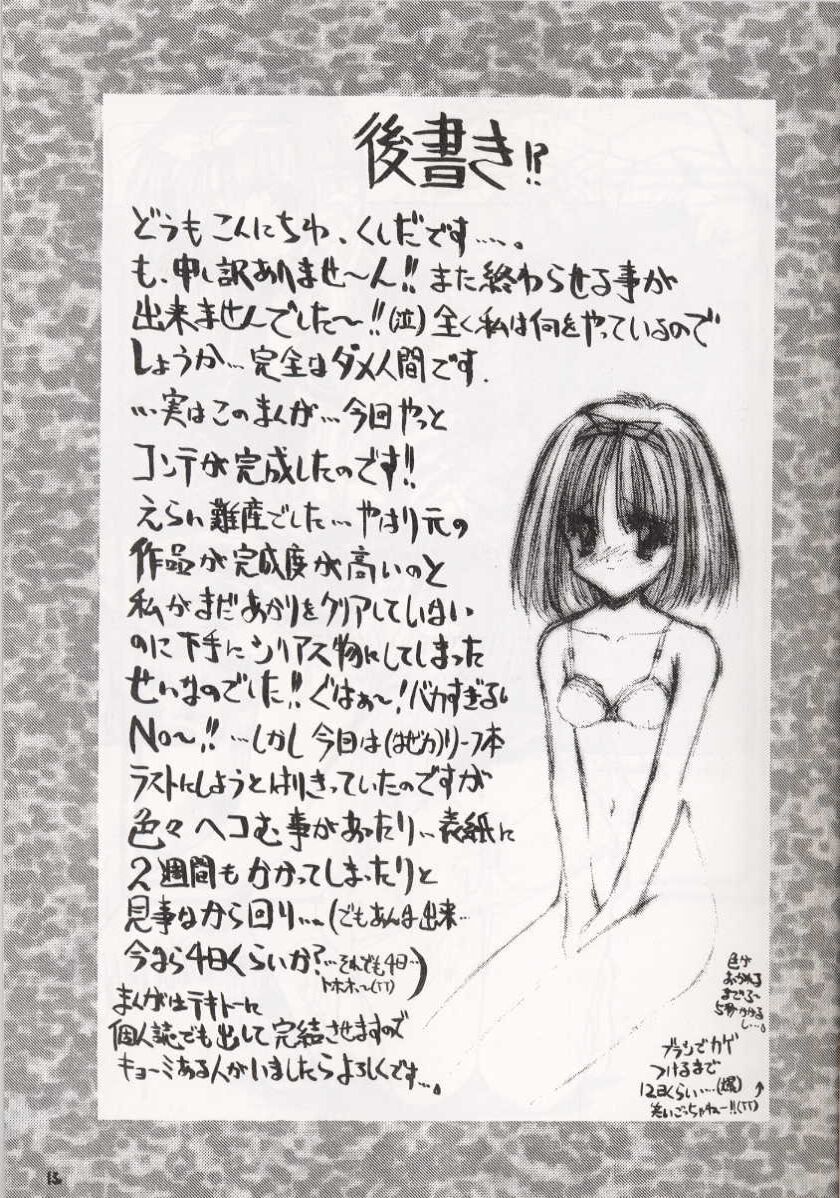 後書き!?
どうもこんにちわ、くしだです….。
も、申し訳ありませ〜ん!!また終わらせる事が
出来ませんでした〜!!(泣)全く私は何をやっているので
しょうか…完全なダメ人間です.
…実はこのまんが…今回やっと
コンテが完成したのです!!
えらい難産でした…やはり元の
作品が完成度が高いのと
私がまだあかりをクリアしていない
のに下手にシリアス物にしてしまった
せいなのでした!!ぐはぁ〜!バカすぎるし
No〜!!…しかし今日は(はぜか)リーフ本
ラストにしようとはりきっていたのですが
色々ヘコむ事があったり…表紙に
2週間もかかってしまったりと
見事なから回り…。(でもあんな出来…
今なら4日くらいか?…それでも4日…
トホホ〜(TT))
まんがはテキトーに
個人誌でも出して完結させますので
キョーミある人がいましたらよろしくです…。
ブラシでカゲ
つけるまで
12日くらい…(爆)
13